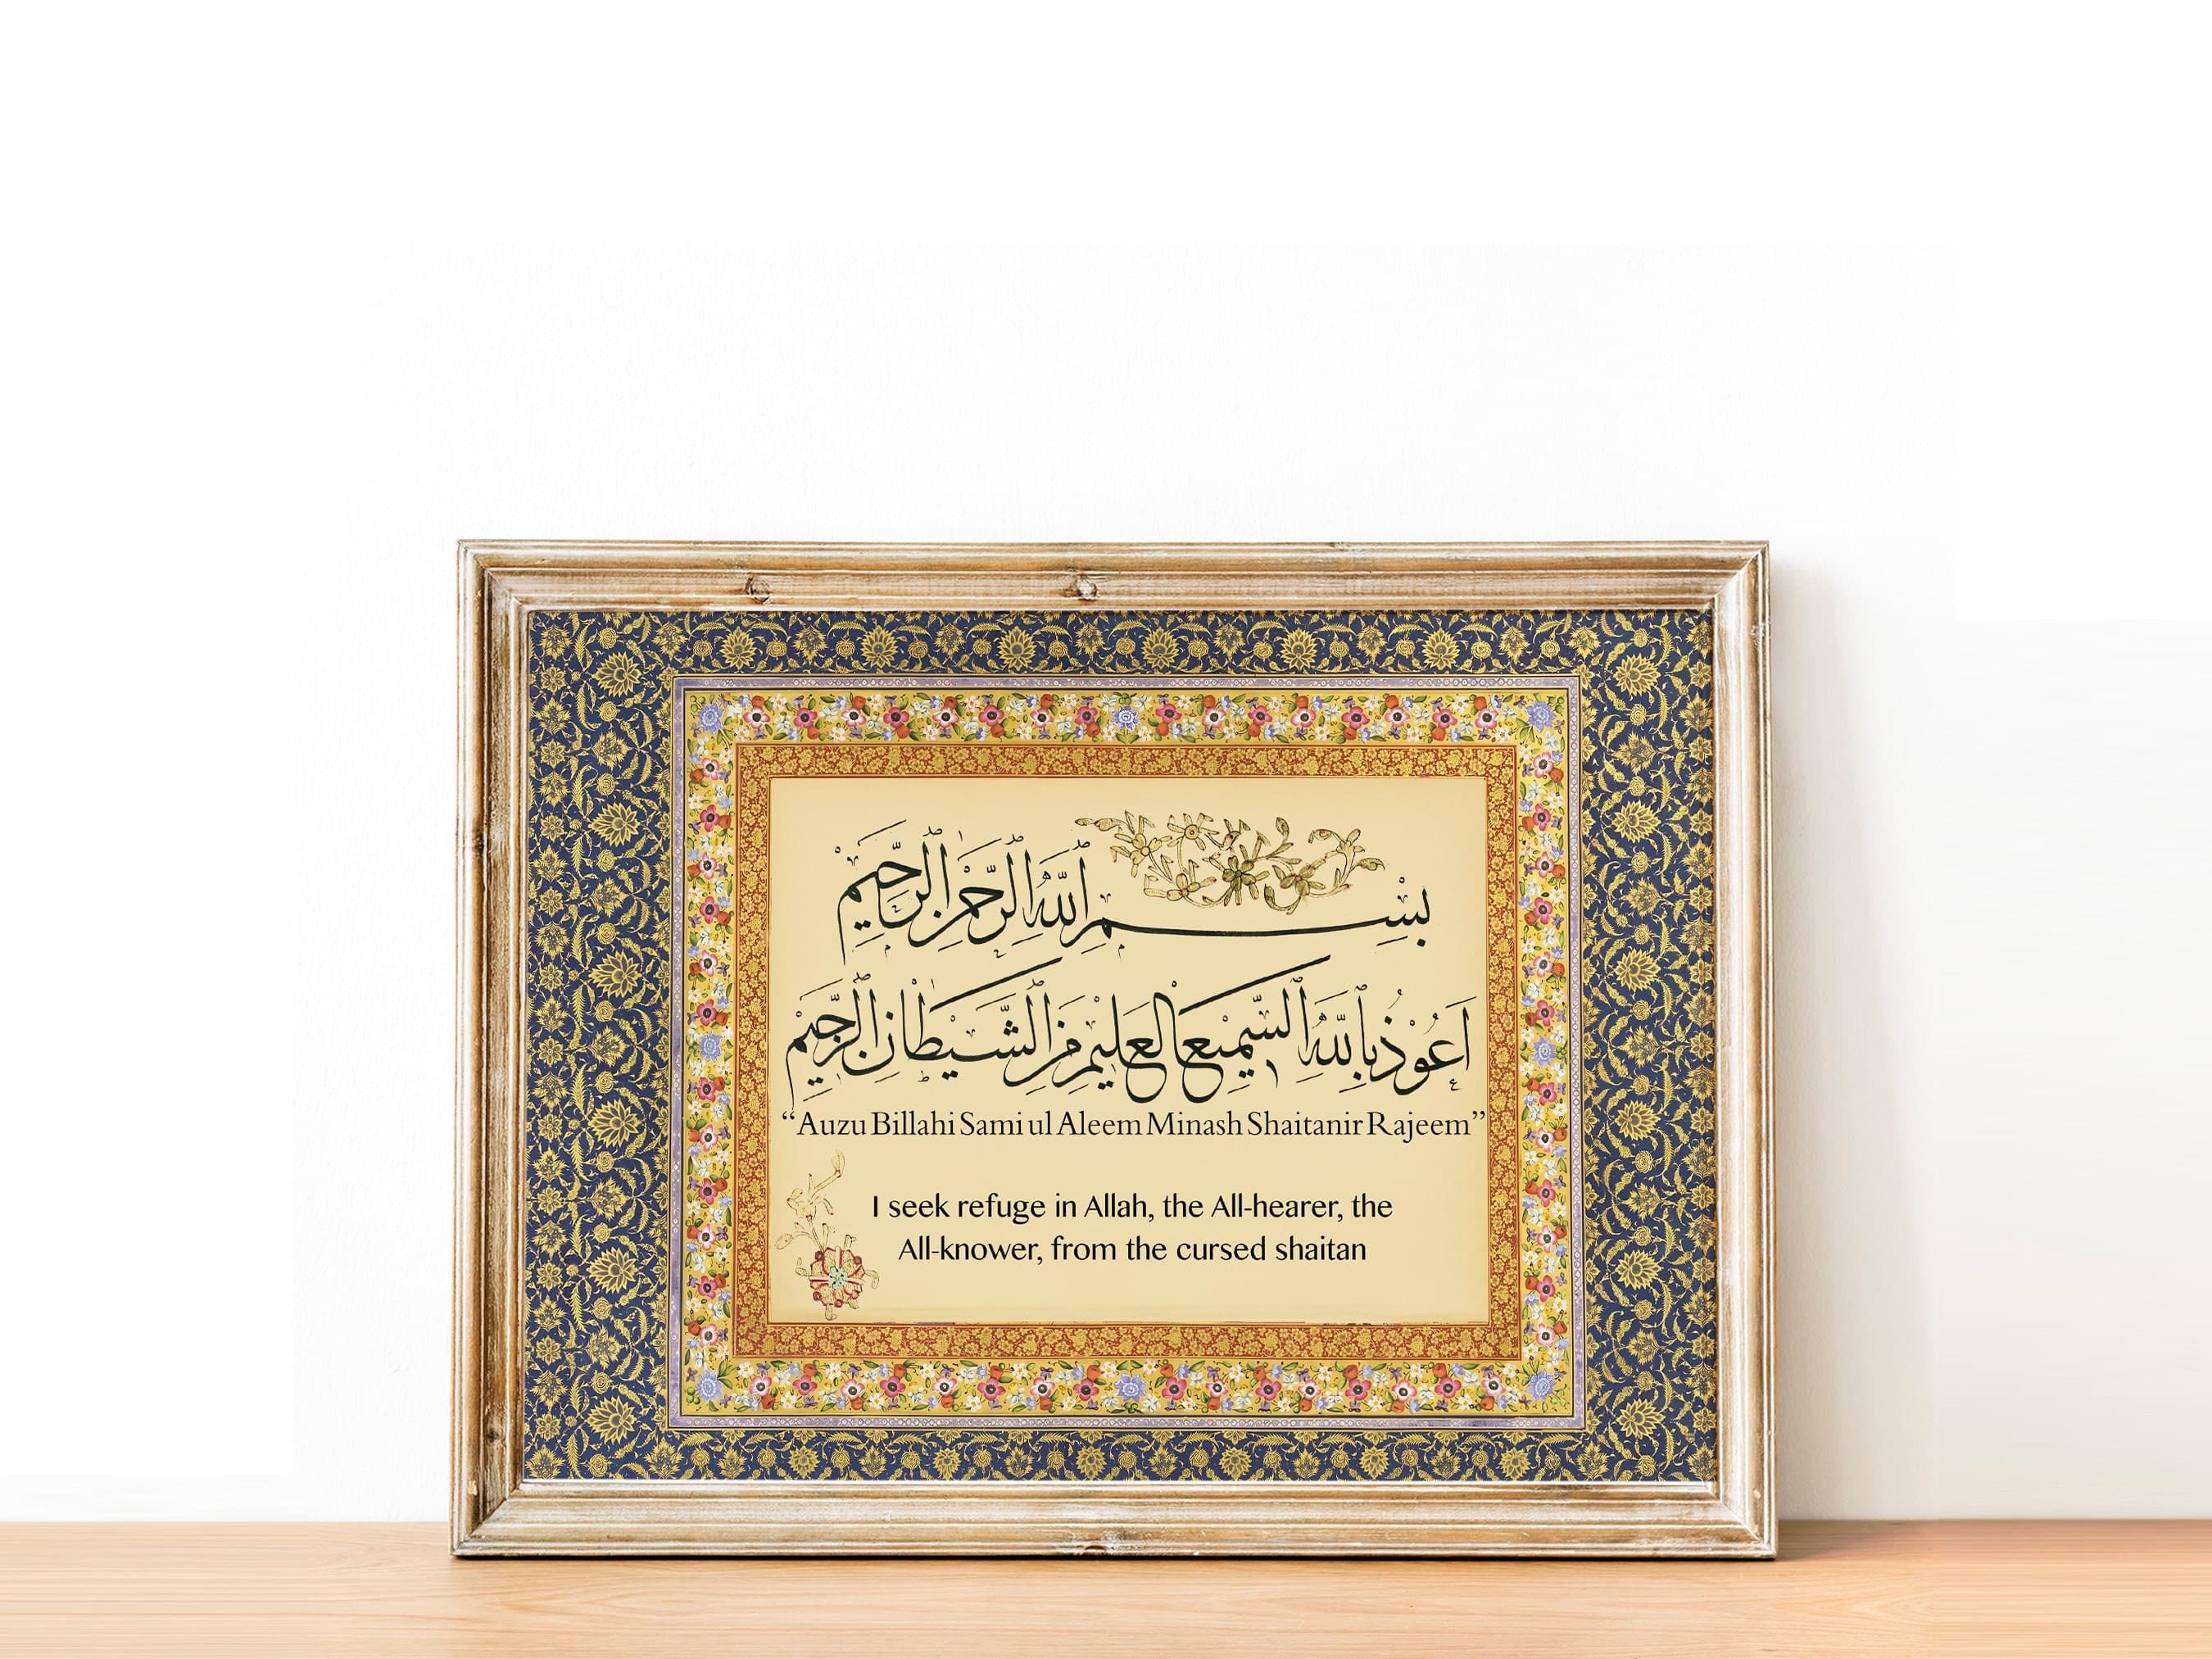 بِسْمِ اللَّهِ الرَّحْمٰنِ الرَّحِيْمِ
اَعُوْذُ بِاللَّهِ السَّمِيْعِ الْعَلِيْمِ مِنَ الشَّيْطَانِ الرَّجِيْمِ
“Auzu Billahi Sami ul Aleem Minash Shaitanir Rajeem”
I seek refuge in Allah, the All-hearer, the
All-knower, from the cursed shaitan